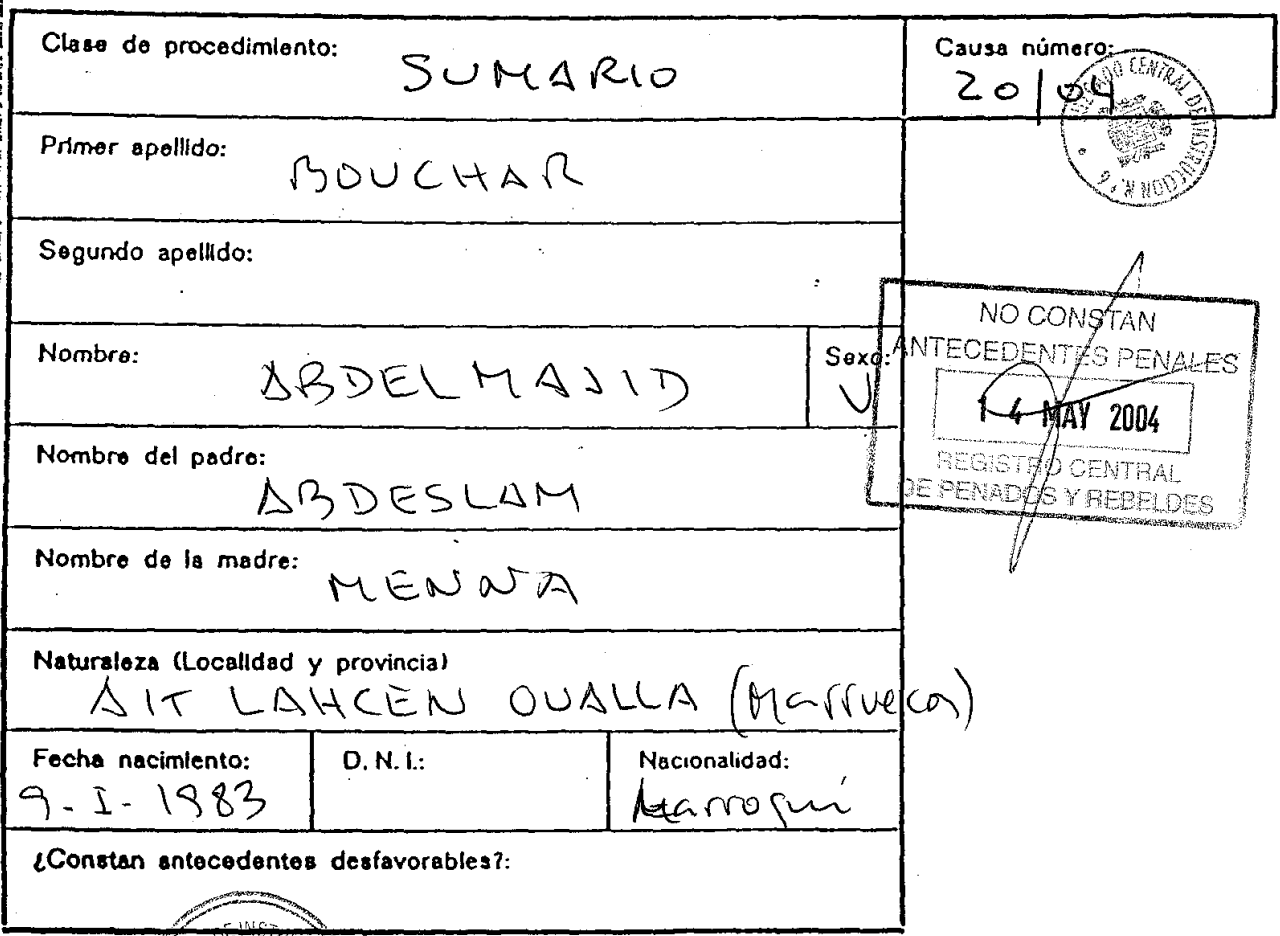 Clase de procedimiento: SUMARIO
Causa número: 20/04
JUZGADO CENTRAL DE INSTRUCCION N.º 6
Primer apellido: BOUCHAR
Segundo apellido:
NO CONSTAN
ANTECEDENTES PENALES
14 MAY 2004
REGISTRO CENTRAL
DE PENADOS Y REBELDES
Nombre: ABDELMAJID
Sexo: V
Nombre del padre: ABDESLAM
Nombre de la madre: MENNA
Naturaleza (Localidad y provincia)
AIT LAHCEN OUALLA (Marruecos)
Fecha nacimiento: 9-I-1983
D. N. I.:
Nacionalidad: Marroquí
¿Constan antecedentes desfavorables?: